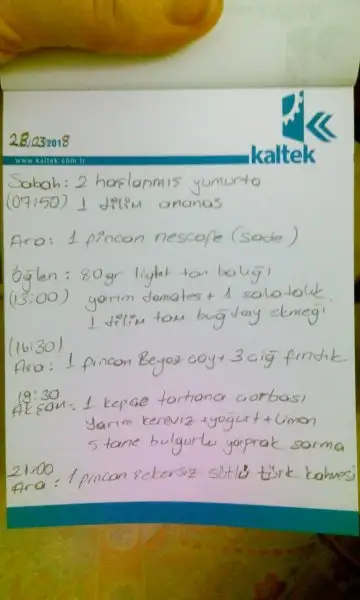 28/03/2018
kaltek
www.kaltek.com.tr
Sabah: 2 haşlanmış yumurta
(09:50) 1 dilim ananas
Ara: 1 fincan nescafe (sade)
Öğlen: 80gr light ton balığı
(13:00) yarım domates + 1 salatalık
1 dilim tam buğday ekmeği
(16:30)
Ara: 1 fincan Beyaz çay + 3 çiğ fındık
19:30
Akşam: 1 kepçe tarhana çorbası
Yarım kereviz + yoğurt + limon
5 tane bulgurlu yaprak sarma
21:00
Ara: 1 fincan şekersiz sütlü türk kahvesi